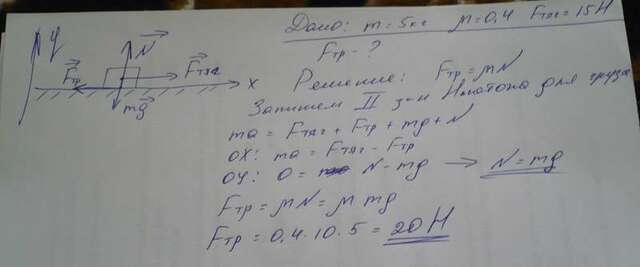 Дано: m = 5кг μ = 0,4 Fтяг = 15 Н
Fтр - ?
Решение: Fтр = μN
Запишем II з-н Ньютона для груза
ma = Fтяг + Fтр + mg + N
OX: ma = Fтяг - Fтр
OY: 0 = N - mg → N = mg
Fтр = μN = μ mg
Fтр = 0,4 · 10 · 5 = 20 Н
y
N
Fтр
Fтяг
x
mg